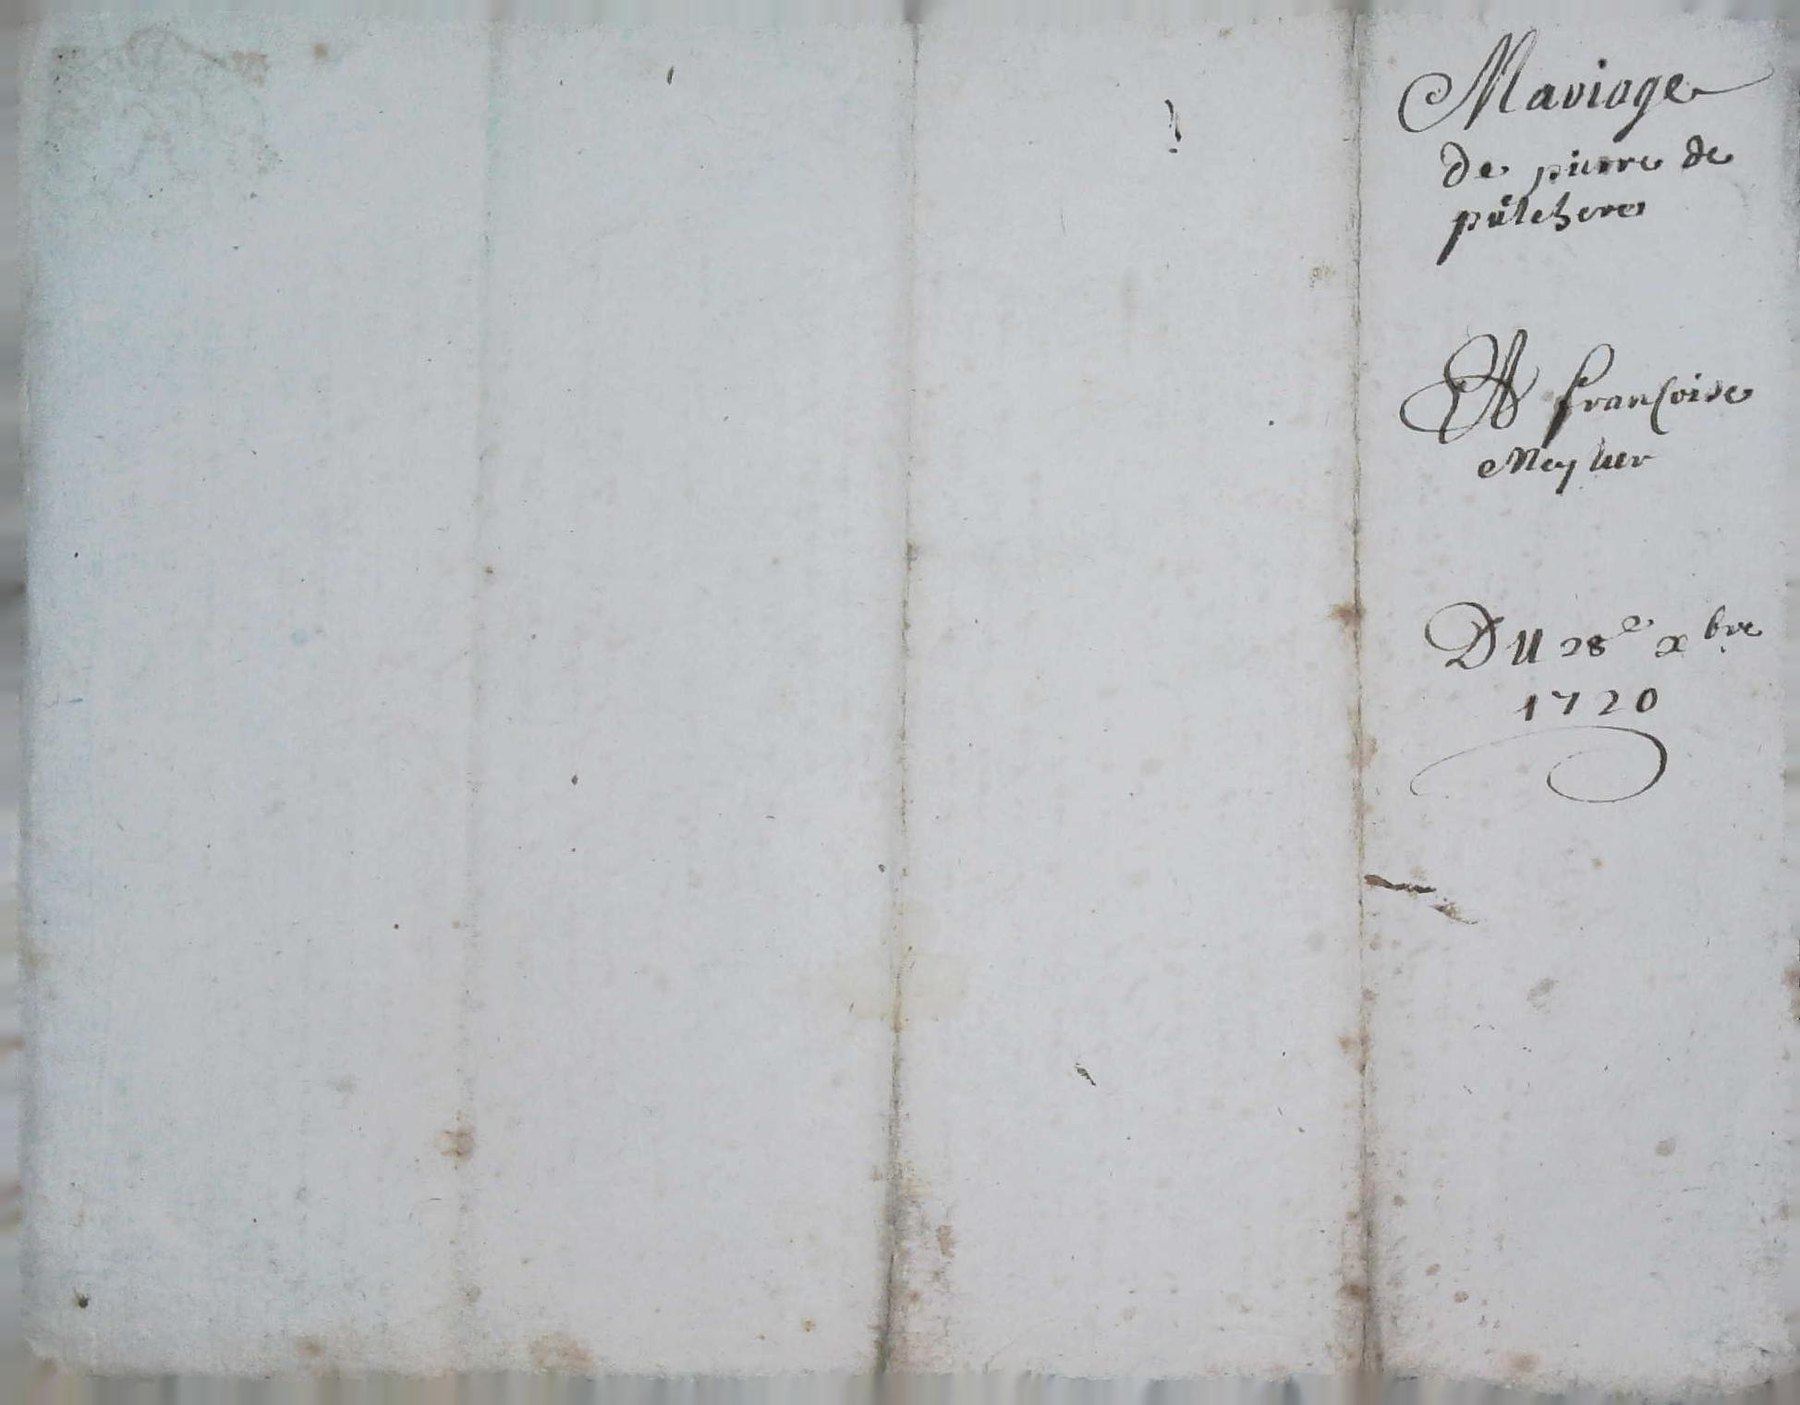 Mariage
De pierre de
pulchere
A françoise
Meynier
Du 28e xbre
1720